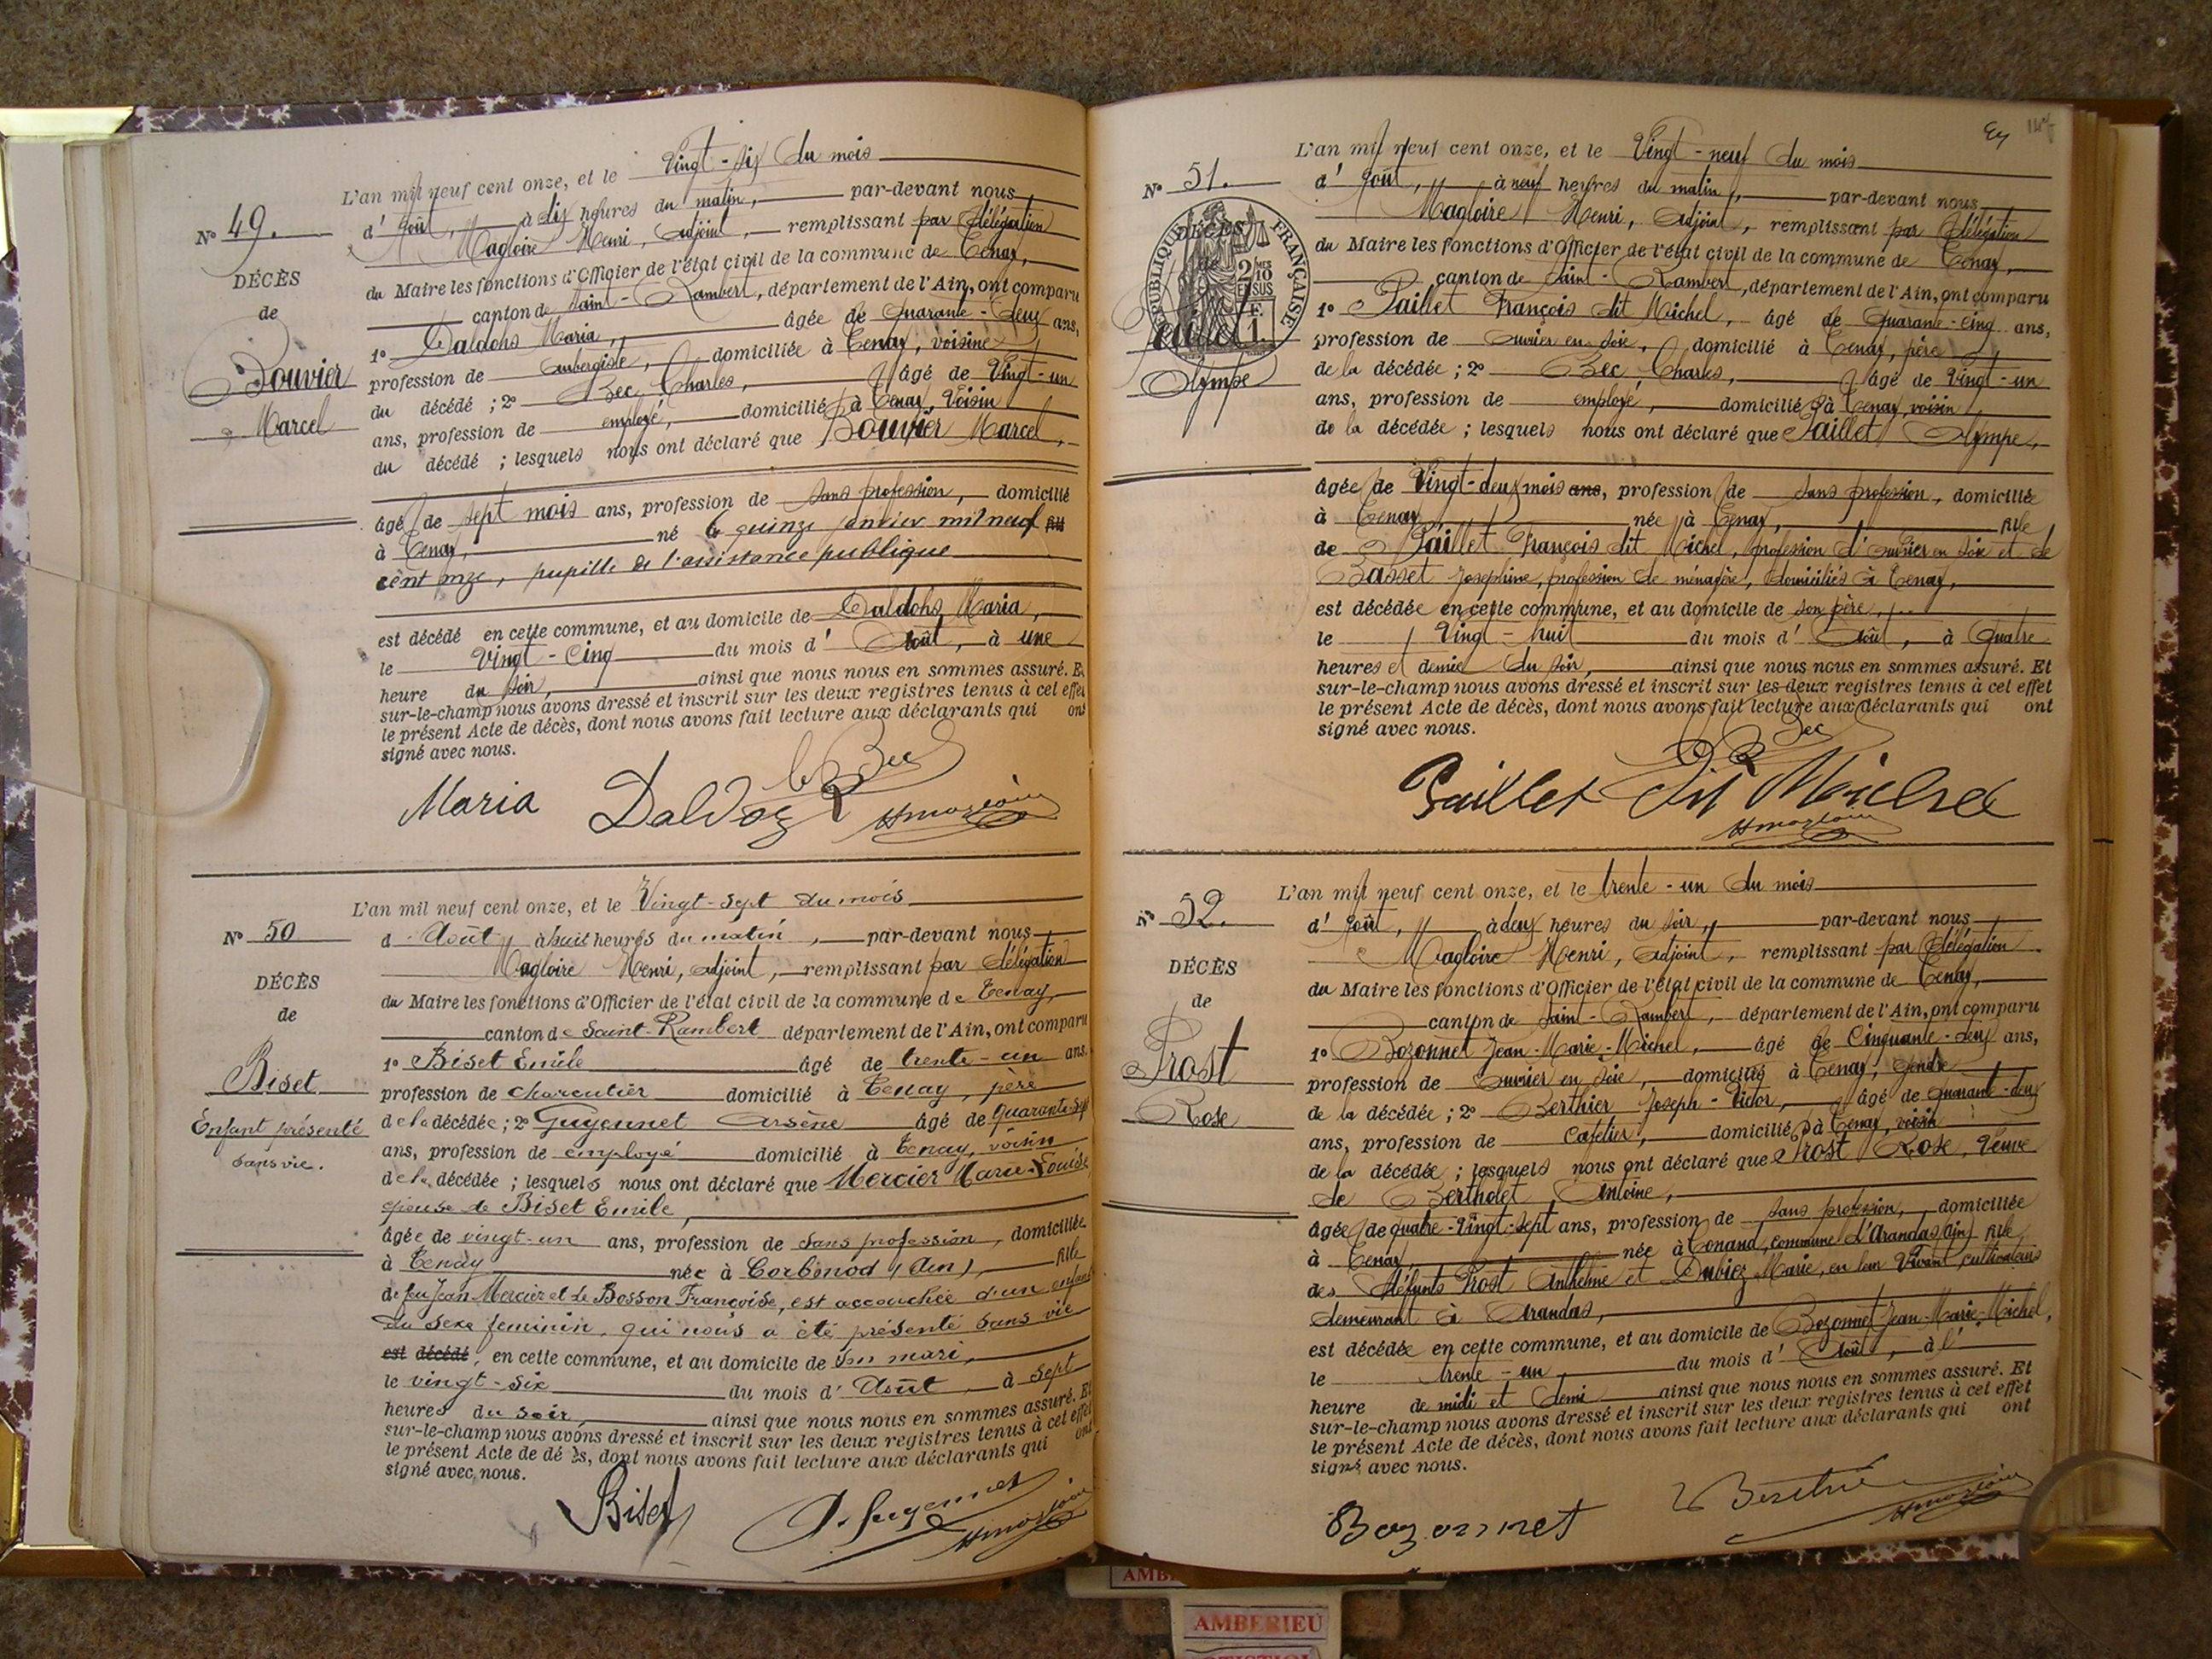 N° 49.
DÉCÈS
de
Bouvier
Marcel
L'an mil neuf cent onze, et le Vingt-six du mois
d'Août, à dix heures du matin, par-devant nous
Magloire Henri, adjoint, remplissant par délégation
du Maire les fonctions d'Officier de l'état civil de la commune de Tenay,
canton de Saint-Rambert, département de l'Ain, ont comparu
1° Maria, âgée de quarante-deux ans,
profession de aubergiste, domiciliée à Tenay, voisine
du décédé; 2° Bec Charles, âgé de Vingt-un
ans, profession de employé, domicilié à Tenay, voisin
du décédé; lesquels nous ont déclaré que Bouvier Marcel,
âgé de sept mois ans, profession de sans profession, domicilié
à Tenay, né le quinze janvier mil neuf fils
cent onze, pupille de l'assistance publique
est décédé en cette commune, et au domicile de Maria,
le Vingt-cinq du mois d'Août, à une
heure du soir, ainsi que nous nous en sommes assuré. Et
sur-le-champ nous avons dressé et inscrit sur les deux registres tenus à cet effet
le présent Acte de décès, dont nous avons fait lecture aux déclarants qui ont
signé avec nous.
Maria Bec
N° 50
DÉCÈS
de
Biset
Enfant présenté
sans vie.
L'an mil neuf cent onze, et le Vingt-sept du mois
d'Août à huit heures du matin, par-devant nous
Magloire Henri, adjoint, remplissant par délégation
du Maire les fonctions d'Officier de l'état civil de la commune de Tenay,
canton de Saint-Rambert département de l'Ain, ont comparu
1° Biset Emile âgé de trente-un ans,
profession de charcutier domicilié à Tenay, père
de la décédée; 2° Guyennet Arsène âgé de quarante-sept
ans, profession de employé domicilié à Tenay, voisin
de la décédée; lesquels nous ont déclaré que Mercier Marie-Louise,
épouse de Biset Emile,
âgée de vingt-un ans, profession de sans profession, domiciliée
à Tenay née à Corbonod (Ain), fille
de feu Jean Mercier et de Bosson Françoise, est accouchée d'un enfant
du sexe feminin, qui nous a été présenté sans vie
est décédé, en cette commune, et au domicile de son mari,
le vingt-six du mois d'Août, à sept
heures du soir, ainsi que nous nous en sommes assuré. Et
sur-le-champ nous avons dressé et inscrit sur les deux registres tenus à cet effet
le présent Acte de décès, dont nous avons fait lecture aux déclarants qui ont
signé avec nous.
Biset A. Guyennet
N° 51.
DÉCÈS
de
RÉPUBLIQUE FRANÇAISE
2 MES
10
EN SUS
1 F.
Paillet
Olympe
L'an mil neuf cent onze, et le Vingt-neuf du mois
d'Août, à neuf heures du matin, par-devant nous
Magloire Henri, adjoint, remplissant par délégation
du Maire les fonctions d'Officier de l'état civil de la commune de Tenay,
canton de Saint-Rambert, département de l'Ain, ont comparu
1° Paillet François dit Michel, âgé de quarante-cinq ans,
profession de ouvrier en soie, domicilié à Tenay, père
de la décédée; 2° Bec Charles, âgé de Vingt-un
ans, profession de employé, domicilié à Tenay, voisin
de la décédée; lesquels nous ont déclaré que Paillet Olympe,
âgée de Vingt-deux mois ans, profession de sans profession, domiciliée
à Tenay née à Tenay, fille
de Paillet François dit Michel, profession d'ouvrier en soie et de
Basset Josephine, profession de ménagère, domiciliés à Tenay,
est décédée en cette commune, et au domicile de son père,
le Vingt-huit du mois d'Août, à quatre
heures et demie du soir, ainsi que nous nous en sommes assuré. Et
sur-le-champ nous avons dressé et inscrit sur les deux registres tenus à cet effet
le présent Acte de décès, dont nous avons fait lecture aux déclarants qui ont
signé avec nous.
Bec
Paillet dit Michel
N° 52.
DÉCÈS
de
Prost
Rose
L'an mil neuf cent onze, et le trente-un du mois
d'Août, à deux heures du soir, par-devant nous
Magloire Henri, adjoint, remplissant par délégation
du Maire les fonctions d'Officier de l'état civil de la commune de Tenay,
canton de Saint-Rambert, département de l'Ain, ont comparu
1° Bozonnet Jean-Marie-Michel, âgé de Cinquante-deux ans,
profession de ouvrier en soie, domicilié à Tenay, gendre
de la décédée; 2° Berthier Joseph-Victor, âgé de quarante-deux
ans, profession de cafetier, domicilié à Tenay, voisin
de la décédée; lesquels nous ont déclaré que Prost Rose, Veuve
de Bertholet Antoine,
âgée de quatre-Vingt-sept ans, profession de sans profession, domiciliée
à Tenay, née à Conand, commune d'Arandas (Ain) fille
des défunts Prost Anthelme et Dubiez Marie, en leur Vivant cultivateurs
demeurant à Arandas,
est décédée en cette commune, et au domicile de Bozonnet Jean-Marie-Michel,
le trente-un du mois d'Août, à l'
heure de midi et demi ainsi que nous nous en sommes assuré. Et
sur-le-champ nous avons dressé et inscrit sur les deux registres tenus à cet effet
le présent Acte de décès, dont nous avons fait lecture aux déclarants qui ont
signé avec nous.
Bozonnet
AMBERIEU